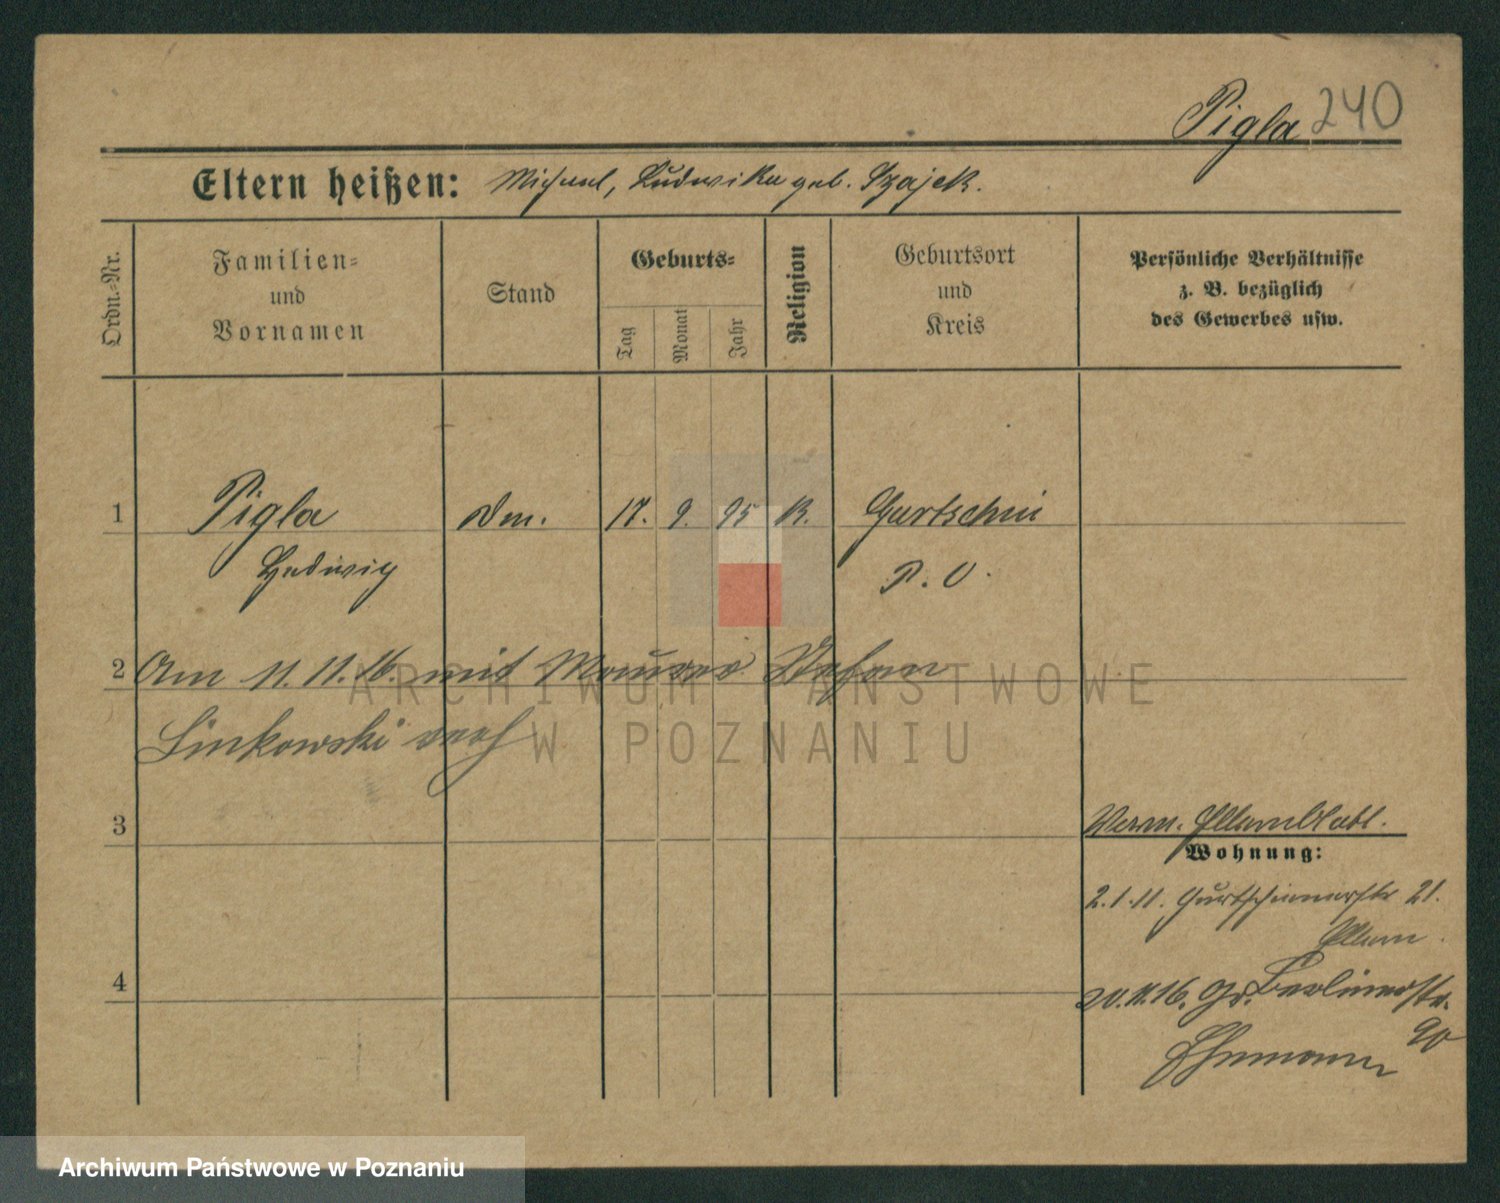 Pigla 240
Eltern heißen: Michael, Ludwika geb. Szajek.
Ordn.-Nr.
Familien-
und
Vornamen
Stand
Geburts-
Tag
Monat
Jahr
Religion
Geburtsort
und
Kreis
Persönliche Verhältnisse
z. B. bezüglich
des Gewerbes usw.
1 Pigla 17. 9. 95 K. Gurtschin
Hedwig P. O.
2 Am 11.11.16. mit Maurer Stefan
Linkowski verh
3
Verm. Elternblatt.
Wohnung:
2.1.11. Gurtschinerstr 21.
Eltern.
4
20.11.16. Gr. Berlinerstr.
90
Ehemann
ARCHIWUM PAŃSTWOWE
W POZNANIU
Archiwum Państwowe w Poznaniu